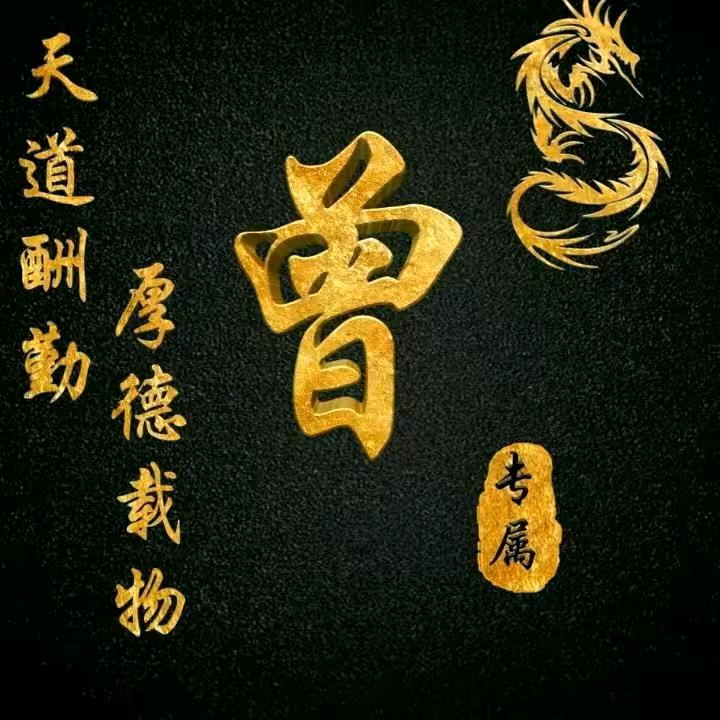 天道酬勤
厚德载物
曾
专属